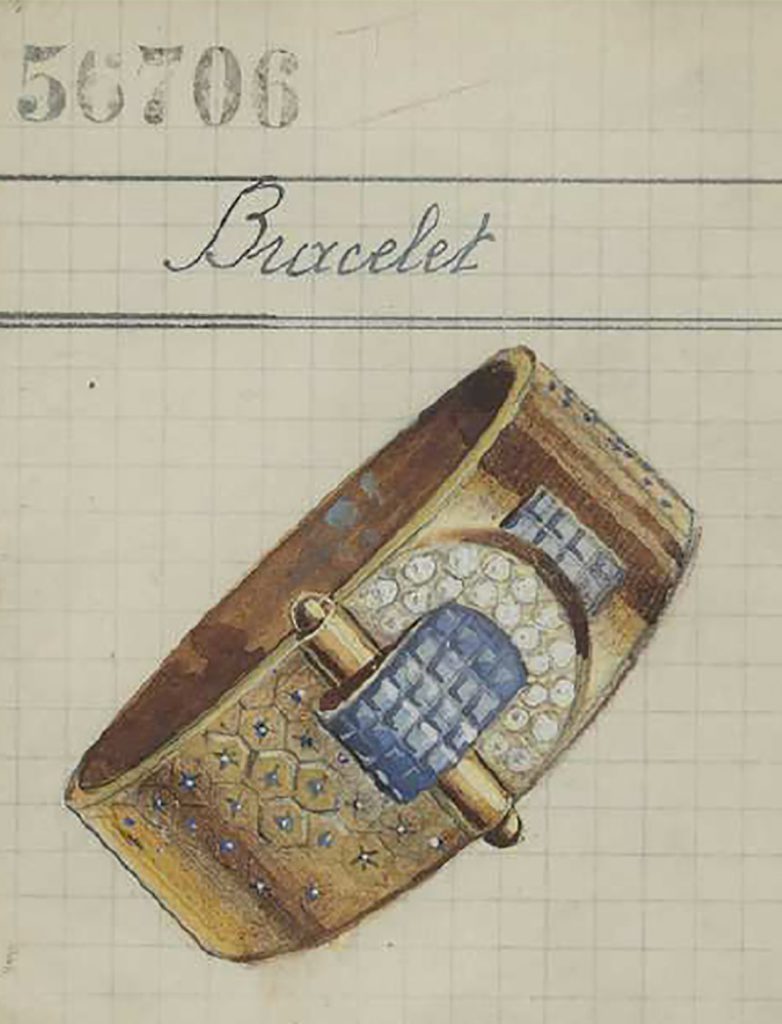 56706
Bracelet